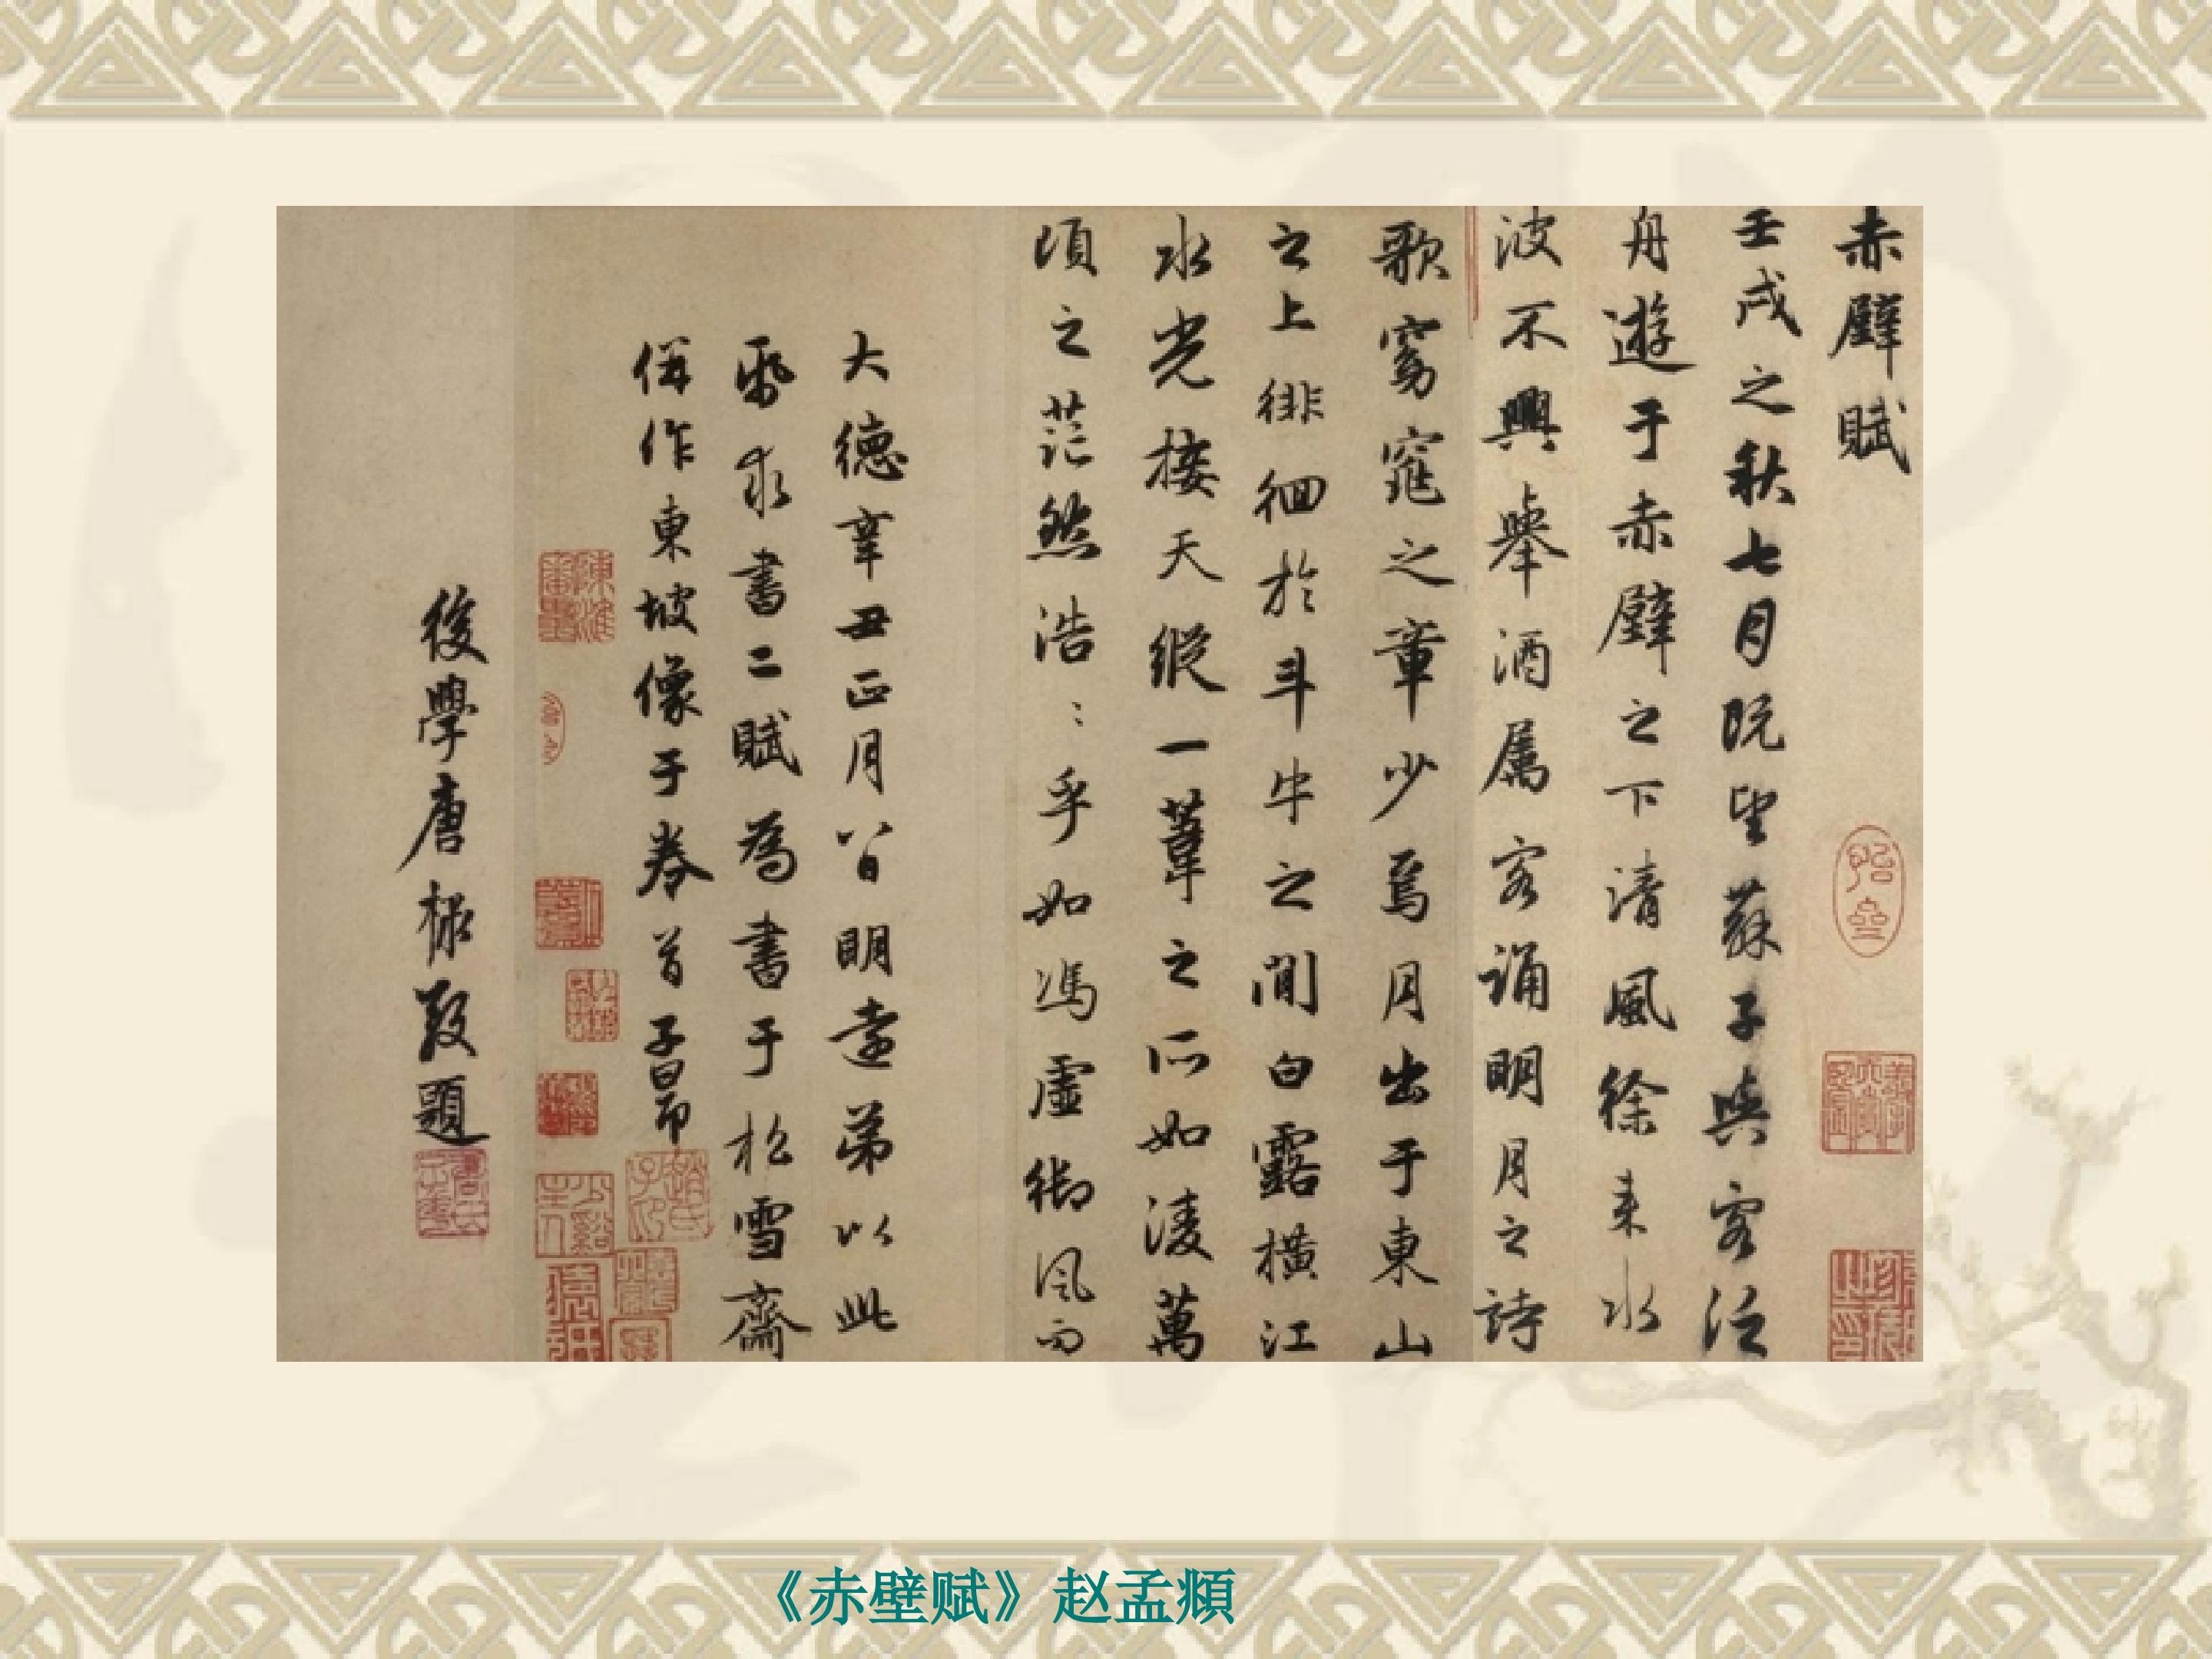 赤壁賦
壬戌之秋七月既望蘇子與客泛
舟遊于赤壁之下清風徐来水
波不興舉酒属客誦明月之詩
歌窈窕之章少焉月出于東山
之上徘徊於斗牛之間白露橫江
水光接天縱一葦之所如凌萬
頃之茫然浩〻乎如馮虛御風而
大德辛丑正月八日明遠弟以此
紙求書二賦為書于松雪齋
併作東坡像于卷首子昂
後學唐棣敬題
《赤壁赋》赵孟頫